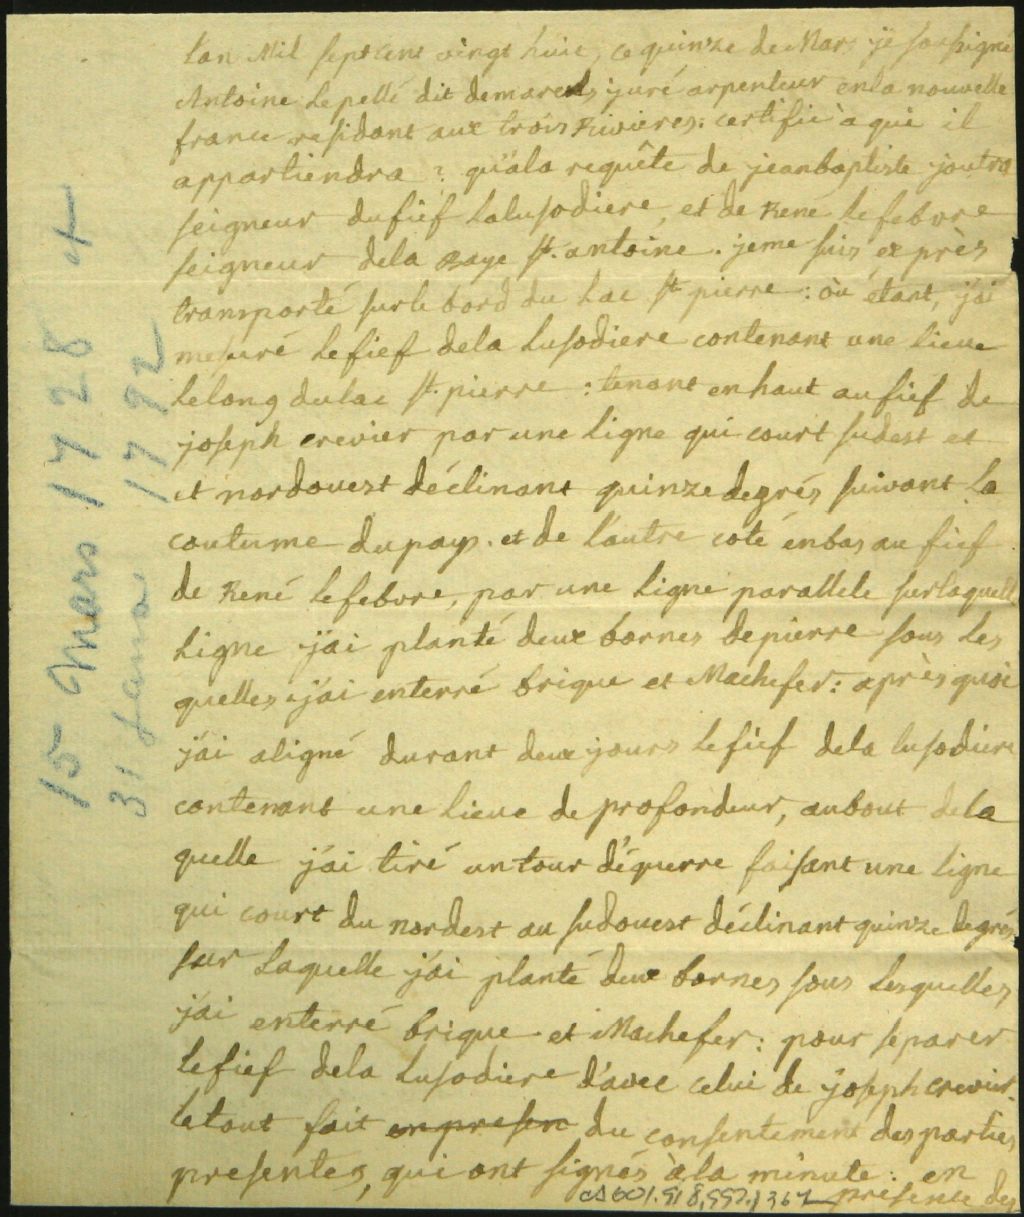 L'an Mil sept cent vingt huit, ce quinze de Mars je soussigné
Antoine Lepellé dit desmarets, juré arpenteur en la nouvelle
france residant aux trois Rivieres: certifie à qui il
appartiendra : qu'àla requête de jeanbaptiste joutra
seigneur du fief Lalusodiere, et de René lefebvre
seigneur dela Baye St. antoine. jeme suis exprès
transporté sur le bord du Lac St. pierre: où étant, j'ai
mesuré Le fief dela Lusodiere contenant une lieue
Lelong dulac St. pierre : tenant en haut au fief de
joseph crevier par une Ligne qui court sudest et
et nordouest déclinant quinze degrés suivant La
coutume du pays. et de L'autre coté enbas au fief
de René Lefebvre, par une Ligne parallele sur laquelle
Ligne j'ai planté deux bornes de pierre sous Les
quelles j'ai enterré brique et Machefer: après quoi
j'ai aligné durant deux jours Le fief dela lusodiere
contenant une Lieue de profondeur, aubout dela
quelle j'ai tiré un tour d'équerre faisant une Ligne
qui court du nordest au sudouest déclinant quinze degrés
sur Laquelle j'ai planté deux bornes sous Lesquelles
j'ai enterré brique et Machefer: pour separer
Le fief dela Lusodiere d'avec celui de joseph crevier.
Le tout fait en presen du consentement des parties
presentes, qui ont signés àla minute: en
presence des
15 Mars 1728 et
31 1792